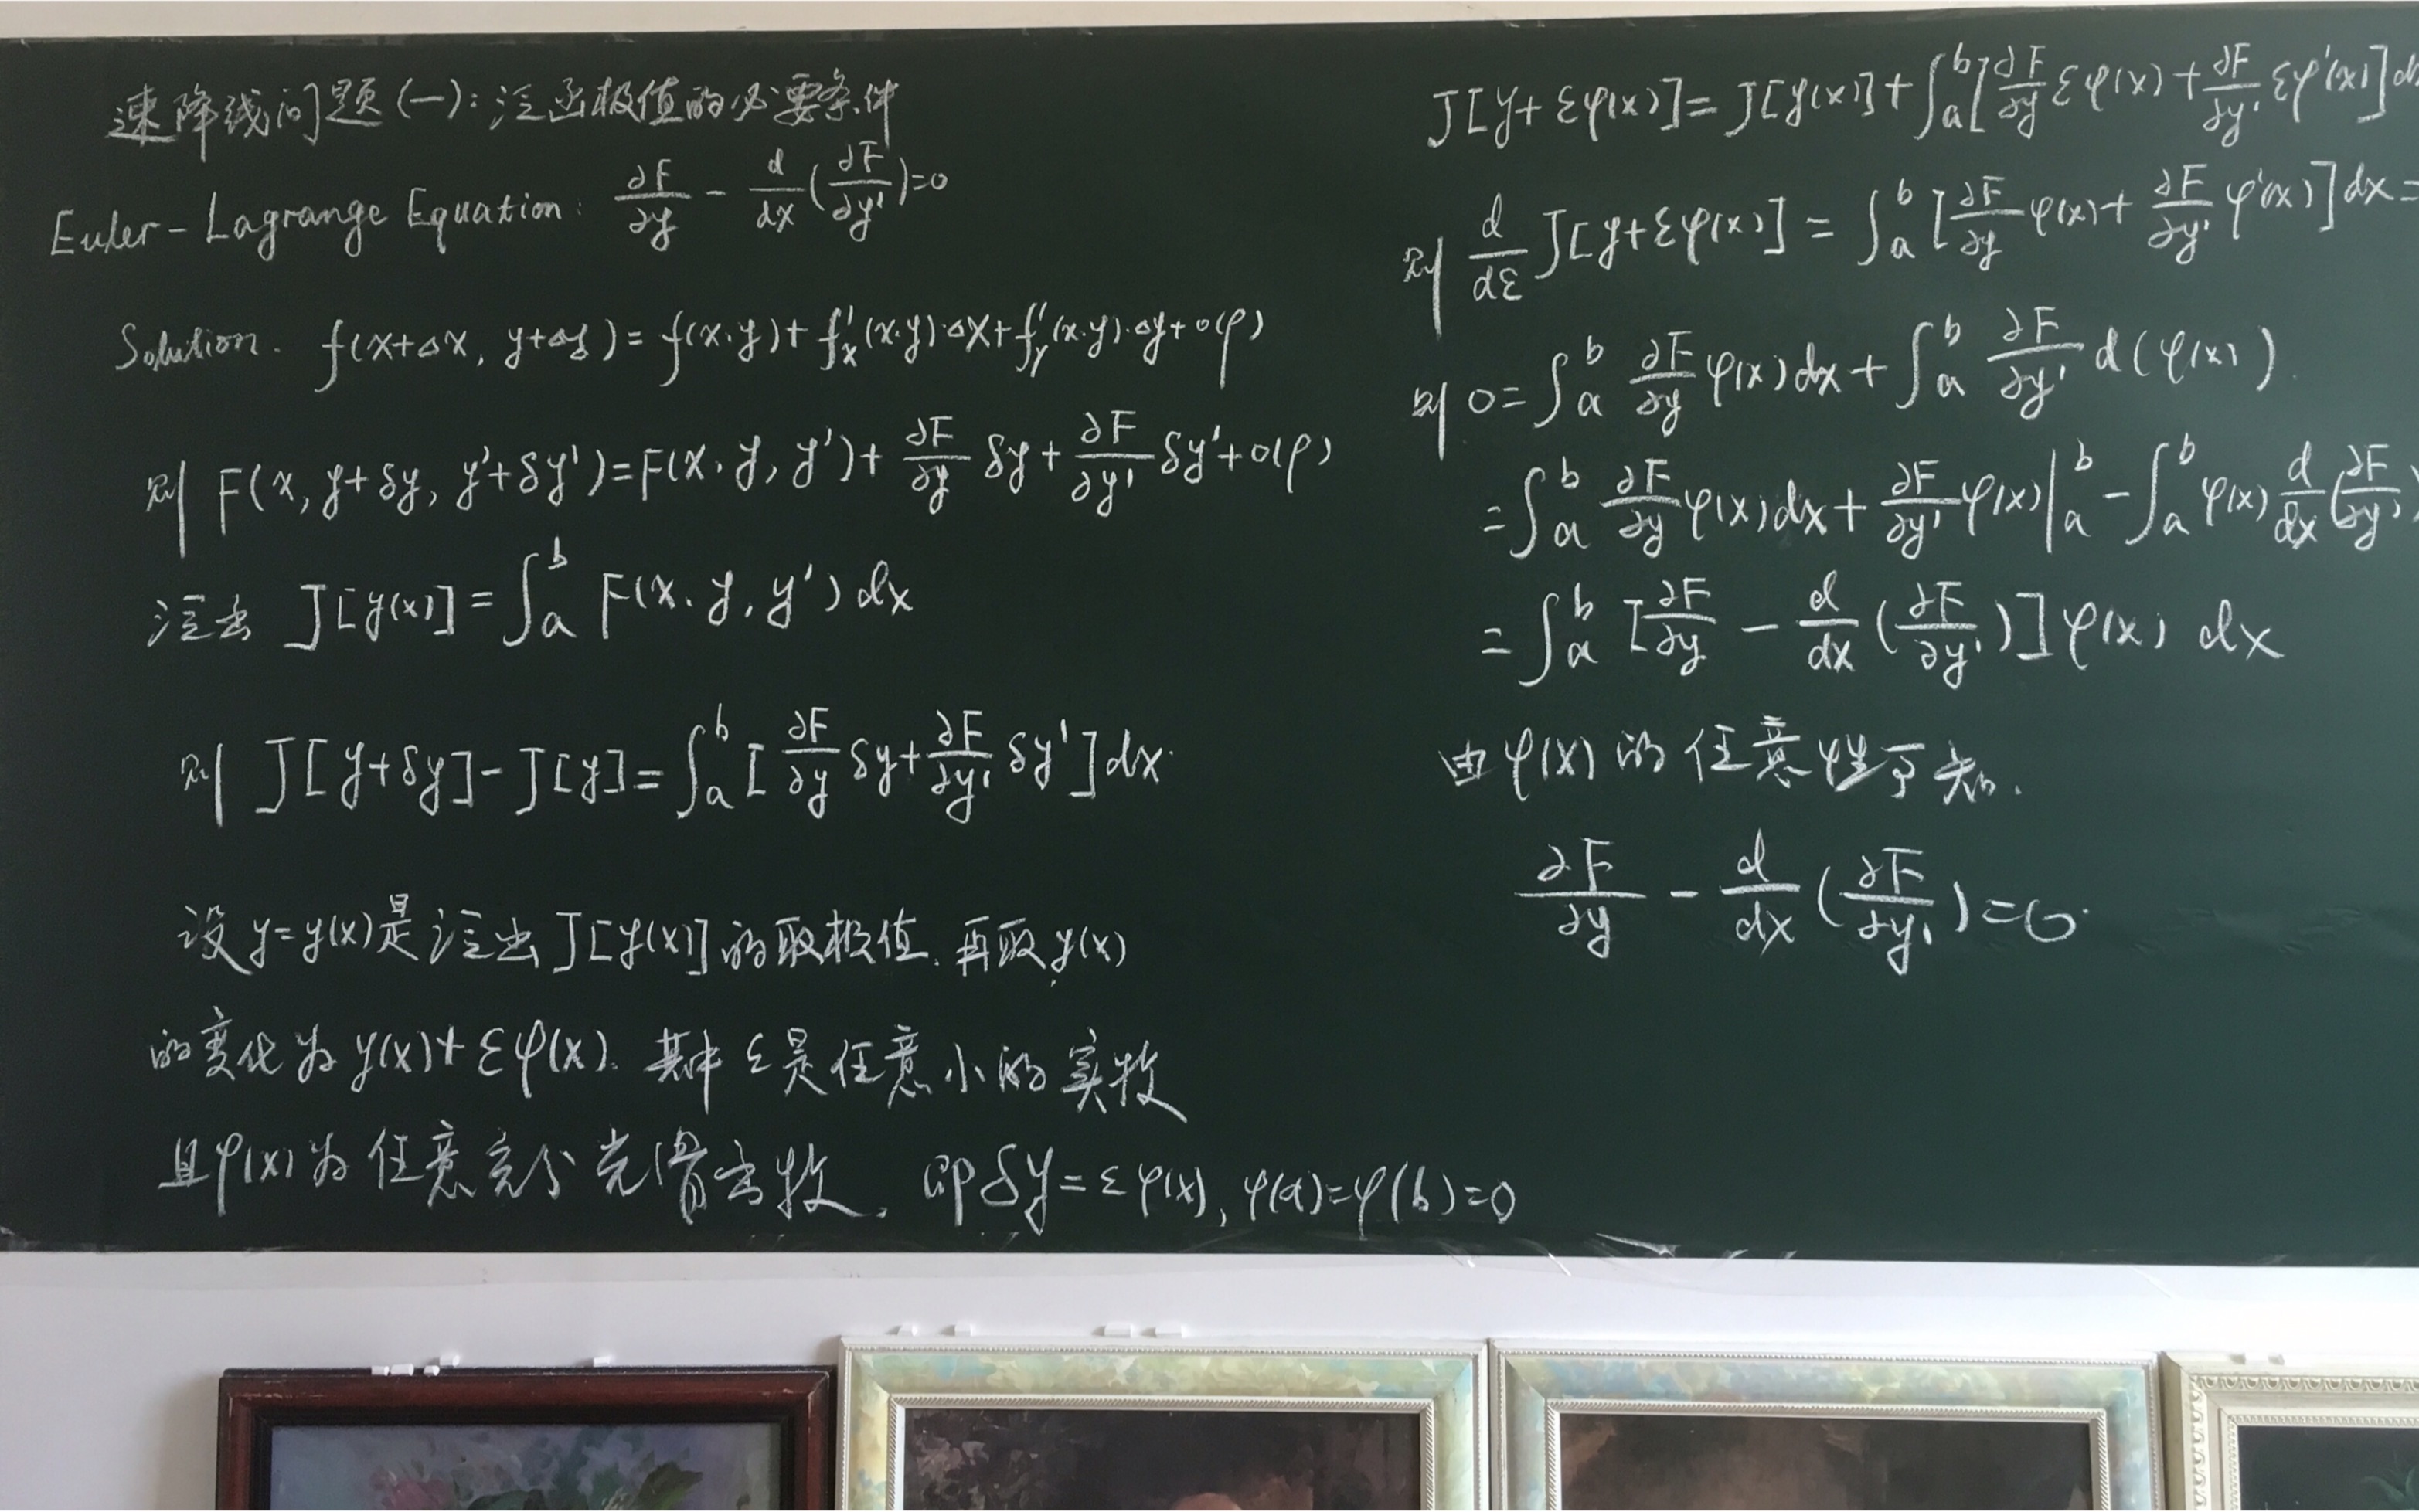 速降线问题(一):泛函极值的必要条件
Euler-Lagrange Equation: ∂F/∂y - d/dx(∂F/∂y')=0
Solution. f(x+Δx, y+Δy)=f(x,y)+f'x(x,y)·Δx+f'y(x,y)·Δy+o(ρ)
则 F(x, y+δy, y'+δy')=F(x, y, y')+ ∂F/∂y δy+ ∂F/∂y' δy'+o(ρ)
泛函 J[y(x)]=∫_a^b F(x, y, y')dx
则 J[y+δy]-J[y]=∫_a^b [∂F/∂y δy+∂F/∂y' δy']dx.
设y=y(x)是泛函J[y(x)]的取极值. 再取y(x)
的变化为y(x)+εφ(x). 其中ε是任意小的实数
且φ(x)为任意充分光滑函数, 即δy=εφ(x), φ(a)=φ(b)=0
J[y+εφ(x)]=J[y(x)]+∫_a^b[∂F/∂y εφ(x)+∂F/∂y' εφ'(x)]dx
则 d/dε J[y+εφ(x)]=∫_a^b [∂F/∂y φ(x)+∂F/∂y' φ'(x)]dx=
则 0=∫_a^b ∂F/∂y φ(x)dx+∫_a^b ∂F/∂y' d(φ(x))
=∫_a^b ∂F/∂y φ(x)dx+∂F/∂y' φ(x)|_a^b-∫_a^b φ(x) d/dx(∂F/∂y')
=∫_a^b [∂F/∂y - d/dx(∂F/∂y')]φ(x) dx
由φ(x)的任意性可知.
∂F/∂y - d/dx(∂F/∂y')=0.